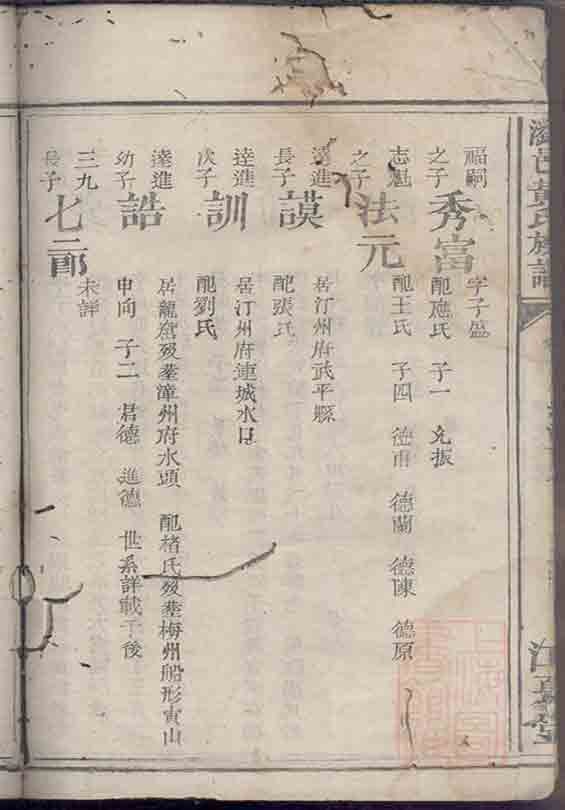 邑黃氏族譜
江夏堂
福嗣之子
秀富
字子盛
配應氏 子一 允振
志魁之子
法元
配王氏 子四 德甫 德蘭 德陳 德原
逵進長子
謨
居汀州府武平縣
配張氏
逵進次子
訓
居汀州府連城水口
配劉氏
逵進幼子
誥
居龍窟歿葬漳州府水頭 配楮氏歿葬梅州船形寅山
申向 子二 君德 進德 世系詳載于後
三九長子
七三郎
未詳